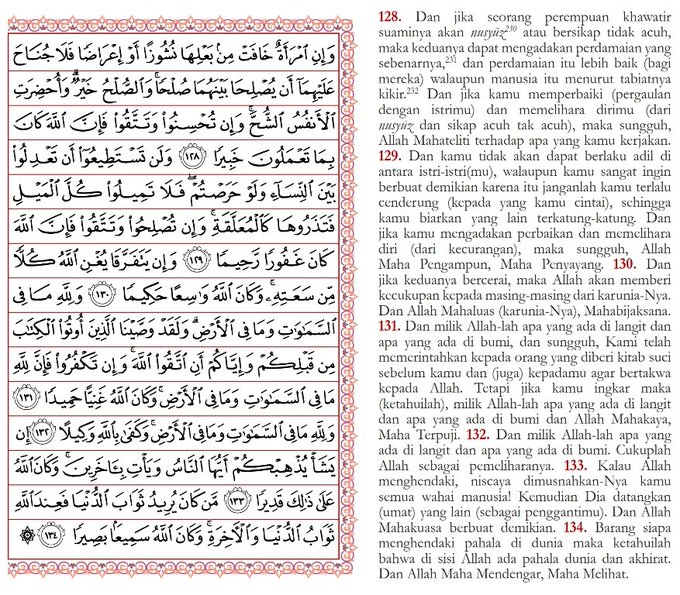 وَإِنِ ٱمۡرَأَةٌ خَافَتۡ مِنۢ بَعۡلِهَا نُشُوزًا أَوۡ إِعۡرَاضٗا فَلَا جُنَاحَ
عَلَيۡهِمَآ أَن يُصۡلِحَا بَيۡنَهُمَا صُلۡحٗاۚ وَٱلصُّلۡحُ خَيۡرٞۗ وَأُحۡضِرَتِ
ٱلۡأَنفُسُ ٱلشُّحَّۚ وَإِن تُحۡسِنُواْ وَتَتَّقُواْ فَإِنَّ ٱللَّهَ كَانَ
بِمَا تَعۡمَلُونَ خَبِيرٗا ١٢٨ وَلَن تَسۡتَطِيعُوٓاْ أَن تَعۡدِلُواْ
بَيۡنَ ٱلنِّسَآءِ وَلَوۡ حَرَصۡتُمۡۖ فَلَا تَمِيلُواْ كُلَّ ٱلۡمَيۡلِ
فَتَذَرُوهَا كَٱلۡمُعَلَّقَةِۚ وَإِن تُصۡلِحُواْ وَتَتَّقُواْ فَإِنَّ ٱللَّهَ
كَانَ غَفُورٗا رَّحِيمٗا ١٢٩ وَإِن يَتَفَرَّقَا يُغۡنِ ٱللَّهُ كُلّٗا
مِّن سَعَتِهِۦۚ وَكَانَ ٱللَّهُ وَٰسِعًا حَكِيمٗا ١٣٠ وَلِلَّهِ مَا فِي
ٱلسَّمَٰوَٰتِ وَمَا فِي ٱلۡأَرۡضِۗ وَلَقَدۡ وَصَّيۡنَا ٱلَّذِينَ أُوتُواْ ٱلۡكِتَٰبَ
مِن قَبۡلِكُمۡ وَإِيَّاكُمۡ أَنِ ٱتَّقُواْ ٱللَّهَۚ وَإِن تَكۡفُرُواْ فَإِنَّ لِلَّهِ
مَا فِي ٱلسَّمَٰوَٰتِ وَمَا فِي ٱلۡأَرۡضِۚ وَكَانَ ٱللَّهُ غَنِيًّا حَمِيدٗا ١٣١
وَلِلَّهِ مَا فِي ٱلسَّمَٰوَٰتِ وَمَا فِي ٱلۡأَرۡضِۚ وَكَفَىٰ بِٱللَّهِ وَكِيلًا ١٣٢ إِن
يَشَأۡ يُذۡهِبۡكُمۡ أَيُّهَا ٱلنَّاسُ وَيَأۡتِ بِـَٔاخَرِينَۚ وَكَانَ ٱللَّهُ
عَلَىٰ ذَٰلِكَ قَدِيرٗا ١٣٣ مَّن كَانَ يُرِيدُ ثَوَابَ ٱلدُّنۡيَا فَعِندَ ٱللَّهِ
ثَوَابُ ٱلدُّنۡيَا وَٱلۡأٓخِرَةِۚ وَكَانَ ٱللَّهُ سَمِيعَۢا بَصِيرٗا ١٣٤
128. Dan jika seorang perempuan khawatir
suaminya akan nusyûz230 atau bersikap tidak acuh,
maka keduanya dapat mengadakan perdamaian yang
sebenarnya,231 dan perdamaian itu lebih baik (bagi
mereka) walaupun manusia itu menurut tabiatnya
kikir.232 Dan jika kamu memperbaiki (pergaulan
dengan istrimu) dan memelihara dirimu (dari
nusyûz dan sikap acuh tak acuh), maka sungguh,
Allah Mahateliti terhadap apa yang kamu kerjakan.
129. Dan kamu tidak akan dapat berlaku adil di
antara istri-istri(mu), walaupun kamu sangat ingin
berbuat demikian karena itu janganlah kamu terlalu
cenderung (kepada yang kamu cintai), sehingga
kamu biarkan yang lain terkatung-katung. Dan
jika kamu mengadakan perbaikan dan memelihara
diri (dari kecurangan), maka sungguh, Allah
Maha Pengampun, Maha Penyayang. 130. Dan
jika keduanya bercerai, maka Allah akan memberi
kecukupan kepada masing-masing dari karunia-Nya.
Dan Allah Mahaluas (karunia-Nya), Mahabijaksana.
131. Dan milik Allah-lah apa yang ada di langit dan
apa yang ada di bumi, dan sungguh, Kami telah
memerintahkan kepada orang yang diberi kitab suci
sebelum kamu dan (juga) kepadamu agar bertakwa
kepada Allah. Tetapi jika kamu ingkar maka
(ketahuilah), milik Allah-lah apa yang ada di langit
dan apa yang ada di bumi dan Allah Mahakaya,
Maha Terpuji. 132. Dan milik Allah-lah apa yang
ada di langit dan apa yang ada di bumi. Cukuplah
Allah sebagai pemeliharanya. 133. Kalau Allah
menghendaki, niscaya dimusnahkan-Nya kamu
semua wahai manusia! Kemudian Dia datangkan
(umat) yang lain (sebagai penggantimu). Dan Allah
Mahakuasa berbuat demikian. 134. Barang siapa
menghendaki pahala di dunia maka ketahuilah
bahwa di sisi Allah ada pahala dunia dan akhirat.
Dan Allah Maha Mendengar, Maha Melihat.